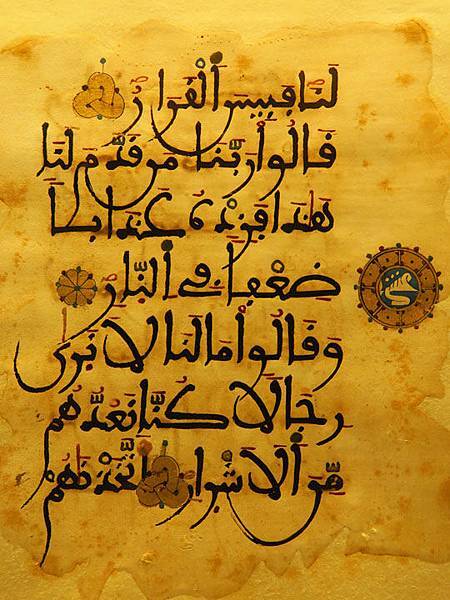 لَنَا فَبِيسَ اَ۬لْقَرَارُ
قَالُواْ رَبَّنَا مَن قَدَّمَ لَنَا
هَٰذَا فَزِدْهُ عَذَابًا
ضِعْفًا فِي اِ۬لنَّارِ
وَقَالُواْ مَا لَنَا لَا نَرَىٰ
رِجَالًا كُنَّا نَعُدُّهُم
مِّنَ اَ۬لَاشْرَارِ أَتَّخَذْنَٰهُمْ